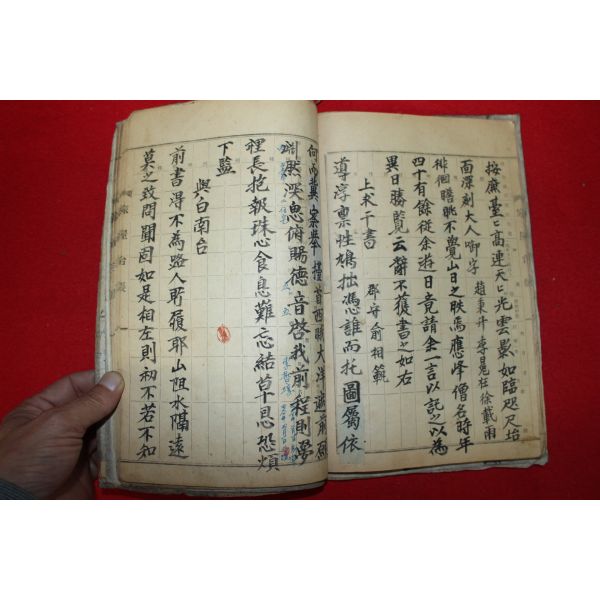 按廉臺〻高連天〻光雲影如臨咫尺坮
面深刻大人啣字 趙秉升 李晃 枉徐載雨
徘徊瞻眺不覺山日之昳焉應峰僧名時年
四十有餘從余遊日竟請余一言以記之以為
異日勝覽云辭不獲書之如右
上求千書 郡守俞相範
導淳禀性鳩拙憑誰而托圖屬依
向而冀
然深思俯賜德音啓我前程則夢
裡長抱報珠心食息難忘結草恩恐煩
下監
與白南台
前書得不為路人所履耶山阻水隔遠
莫之致問聞固如是相左則初不若不知